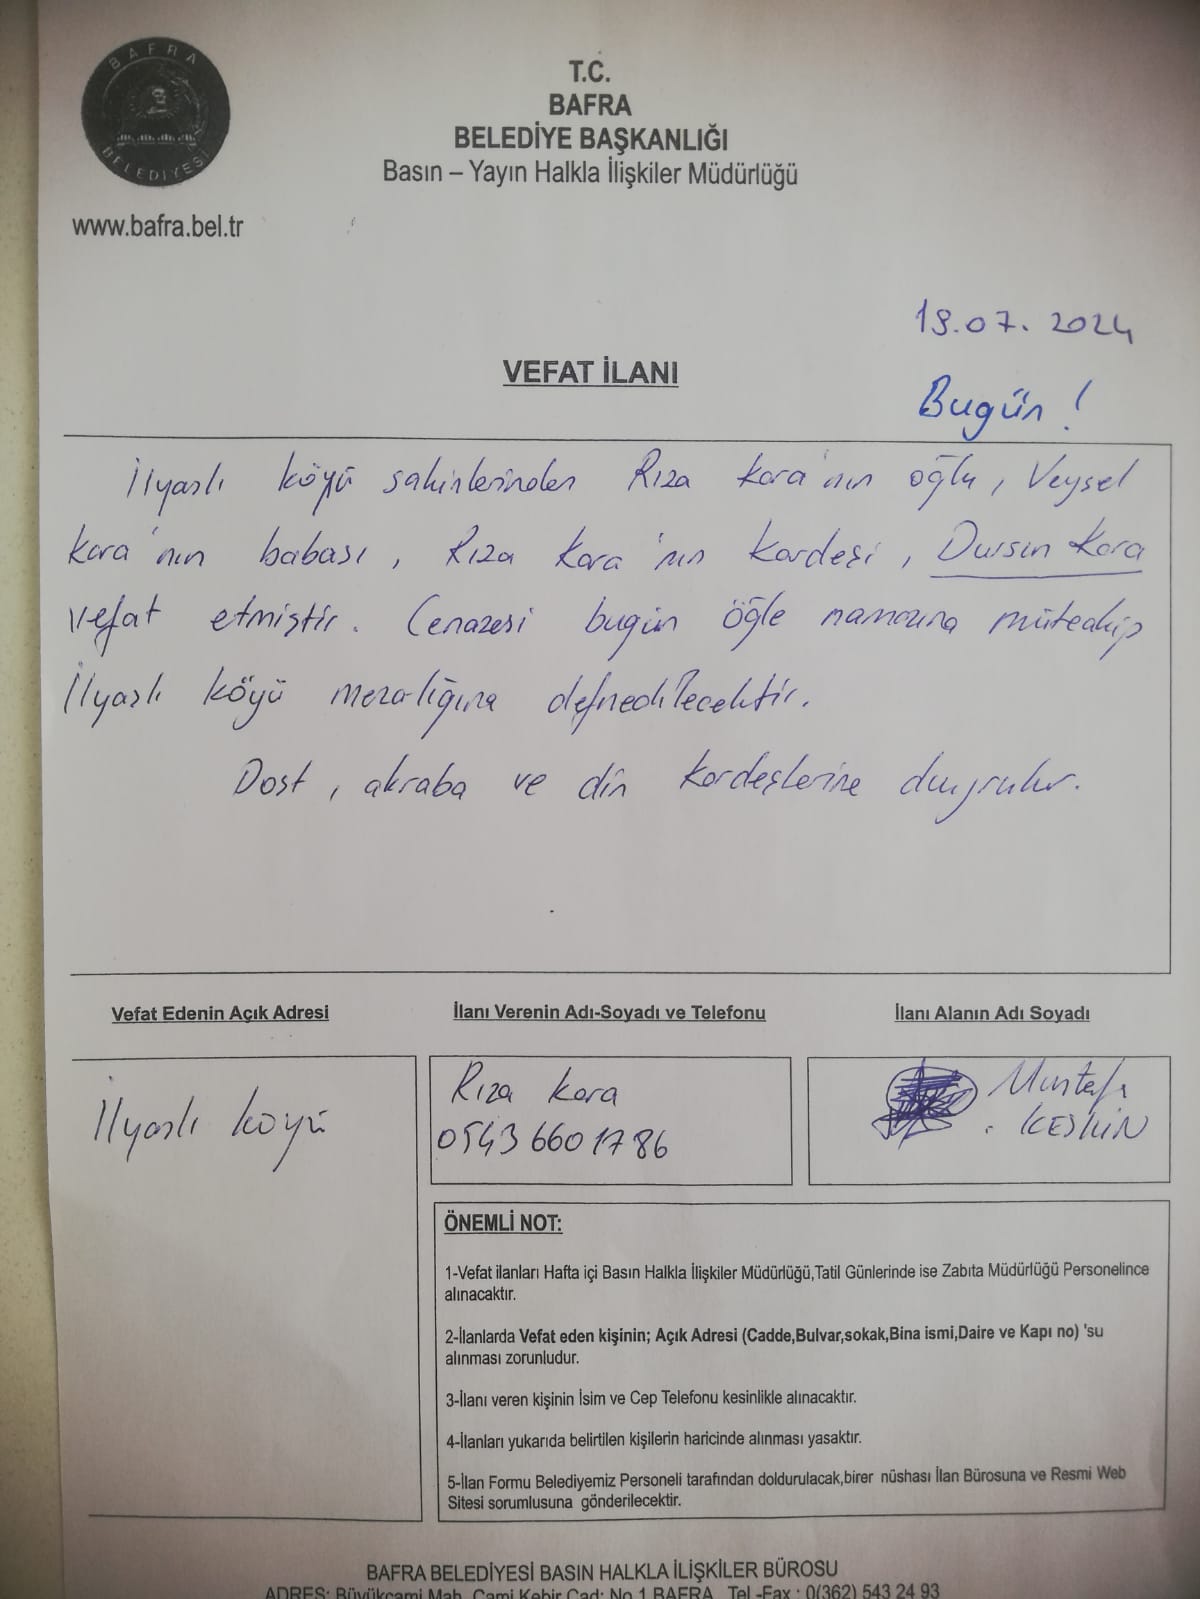 BAFRA
BELEDİYESİ
www.bafra.bel.tr
T.C.
BAFRA
BELEDİYE BAŞKANLIĞI
Basın – Yayın Halkla İlişkiler Müdürlüğü
19.07.2024
VEFAT İLANI
Bugün !
İlyaslı köyü sakinlerinden Rıza Kara'nın oğlu, Veysel
Kara'nın babası, Rıza Kara'nın kardeşi, Dursun Kara
vefat etmiştir. Cenazesi bugün öğle namazına müteakip
İlyaslı köyü mezarlığına defnedilecektir.
Dost, akraba ve din kardeşlerine duyrulur.
Vefat Edenin Açık Adresi
İlyaslı köyü
İlanı Verenin Adı-Soyadı ve Telefonu
Rıza Kara
0543 660 17 86
İlanı Alanın Adı Soyadı
Mustafa
KESKİN
ÖNEMLİ NOT:
1-Vefat ilanları Hafta içi Basın Halkla İlişkiler Müdürlüğü,Tatil Günlerinde ise Zabıta Müdürlüğü Personelince
alınacaktır.
2-İlanlarda Vefat eden kişinin; Açık Adresi (Cadde,Bulvar,sokak,Bina ismi,Daire ve Kapı no) 'su
alınması zorunludur.
3-İlanı veren kişinin İsim ve Cep Telefonu kesinlikle alınacaktır.
4-İlanları yukarıda belirtilen kişilerin haricinde alınması yasaktır.
5-İlan Formu Belediyemiz Personeli tarafından doldurulacak,birer nüshası İlan Bürosuna ve Resmi Web
Sitesi sorumlusuna gönderilecektir.
BAFRA BELEDİYESİ BASIN HALKLA İLİŞKİLER BÜROSU
ADRES: Büyükcami Mah. Cami Kebir Cad: No 1 BAFRA Tel -Fax : 0(362) 543 24 93